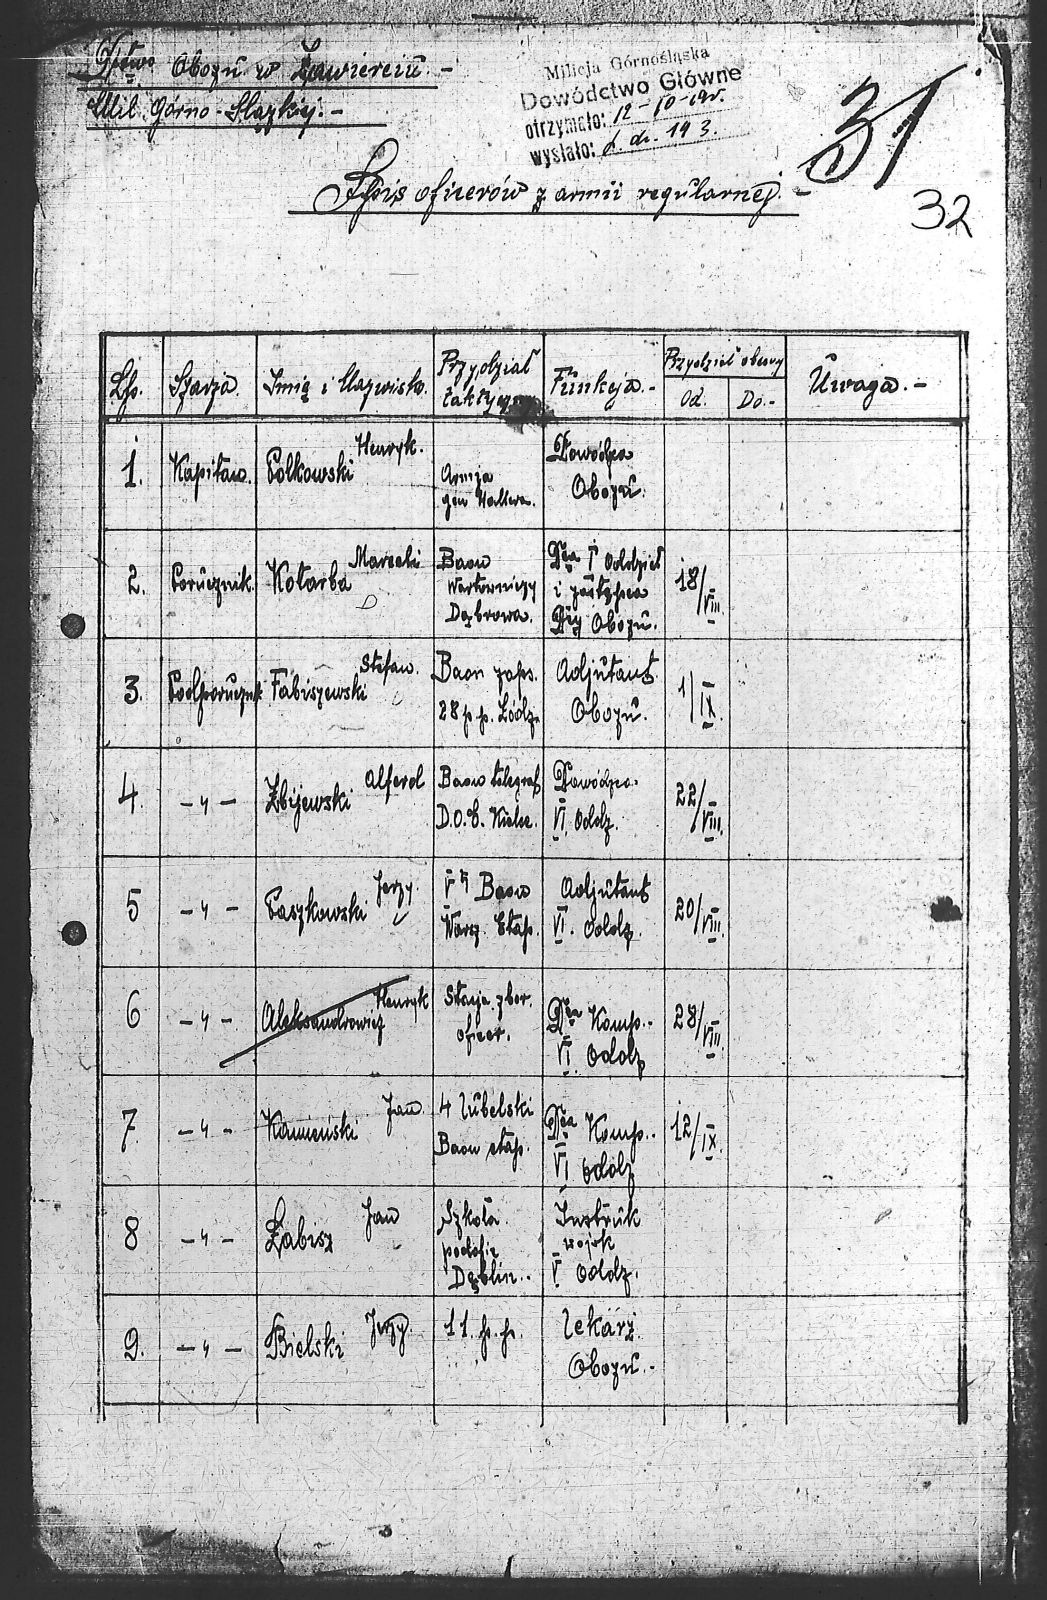 D/two Obozu w Zawierciu.-
Mil. Górno-Slązkiej.-
Milicja Górnośląska
Dowództwo Główne
otrzymało: 12-10-19 r.
wysłało: L. dz. 193.
31
32
Spis oficerów z armii regularnej.-
Lp. Szarża. Imię i Nazwisko. Przydział taktyczny Funkcja.- Przydział obecny Uwaga.-
Od. Do.-
1. Kapitan. Polkowski Henryk. Armja gen Hallera. Dowódca Obozu.
2. Porucznik. Kotarba Marceli Baon Wartowniczy Dąbrowa. Dca I Oddział i zastępca Dcy Obozu. 18/VIII.
3. Podporucznik Fabiszewski Stefan. Baon zaps. 28 p.p. Łódz. Adjutant Obozu. 1/IX.
4. -"- Zbijewski Alferd Baon telegraf. D.O.G. Kielce. Dowódca. VI Oddz. 22/VIII.
5 -"- Paszkowski Jerzy V ty Baon Warsz. Etap. Adjutant VI. Oddz. 20/VIII.
6 -"- Aleksandrowicz Henryk Stacja zbor. oficer. Dca Komp.. VI Oddz 28/VIII.
7. -"- Kamieński Jan 4 lubelski Baon etap. Dca Komp.. VI Oddz 12/IX.
8 -"- Łabisz Jan Szkoła podofiz Dęblin.. Instruk wojsk V Oddz.
9. -"- Bielski Jerzy. 11. p.p. lekarz Obozu.-